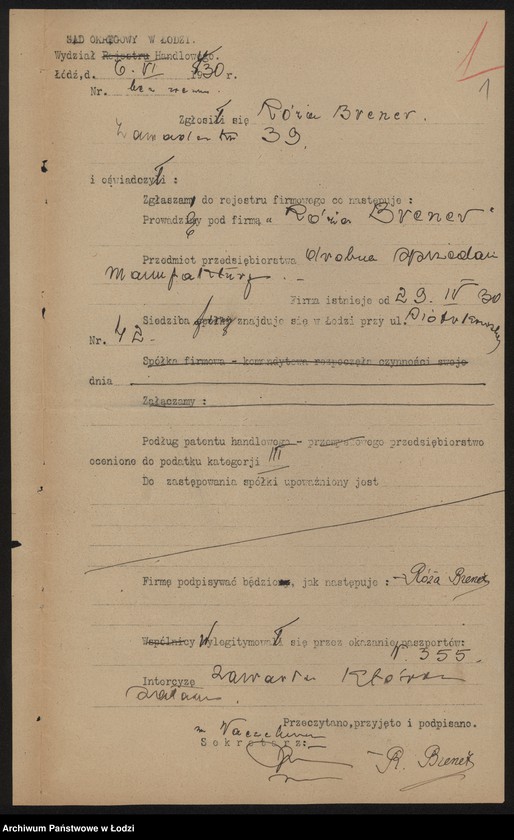 SĄD OKRĘGOWY W ŁODZI.
Wydział Rejestru Handlowego.
Łódź,d. 6. VI 1930 r.
Nr. bez
1
1
Zgłosił się Róża Brener.
Zawadzka 39.
i oświadczył :
Zgłaszam do rejestru firmowego co następuje :
Prowadzę pod firmą „Róża Brener"
Przedmiot przedsiębiorstwa drobna sprzedaż
manufaktury. -
Firma istnieje od 29. IV 30
Siedziba firmy znajduje się w Łodzi przy ul. Piotrkowskiej
Nr. 42 -
Spółka firmowa - komandytowa rozpoczęła czynności swoje
dnia
Załączamy :
Podług patentu handlowego - przemysłowego przedsiębiorstwo
ocenione do podatku kategorji III
Do zastępowania spółki upoważniony jest
Firmę podpisywać będzie, jak następuje : - Róża Brener
Wspólnicy Wylegitymował się przez okazanie paszportów:
N. 355.
Intercyzę zawarła
Przeczytano, przyjęto i podpisano.
Sekretarz:-
- R. Brener
Archiwum Państwowe w Łodzi